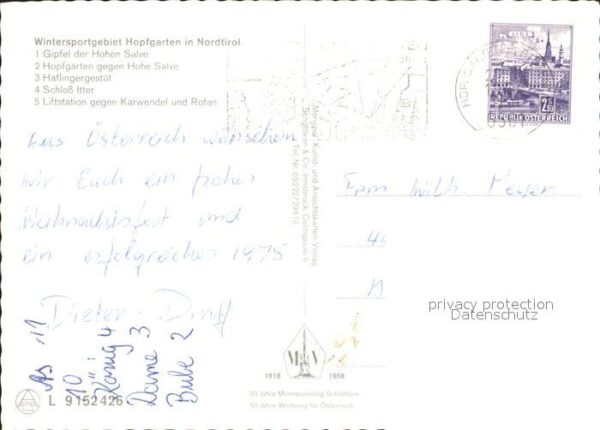 Wintersportgebiet Hopfgarten in Nordtirol
1 Gipfel der Hohen Salve
2 Hopfgarten gegen Hohe Salve
3 Haflingergestüt
4 Schloß Itter
5 Liftstation gegen Karwendel und Rofan
Aus Österreich wünschen
wir Euch ein frohes
Weihnachtsfest und
ein erfolgreiches 1975
Dieter
As 11
10
König 4
Dame 3
Bube 2
L 9152426
1918 1968
50 Jahre Monopolverlag Schöllhorn
50 Jahre Werbung für Österreich
Monopol - Kunst- und Ansichtskarten-Verlag
Schöllhorn & Co. Innsbruck
LINZ
2.50
REPUBLIK ÖSTERREICH
Fam. Willi
40
M
privacy protection
Datenschutz